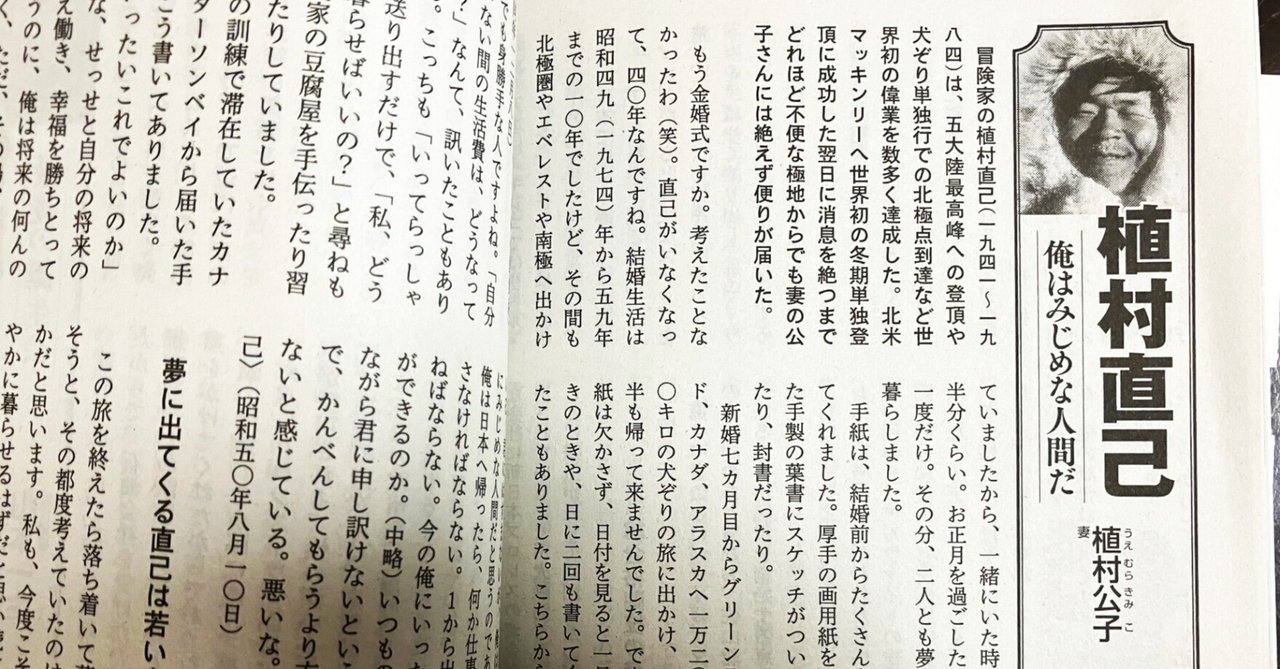 植村直己
俺はみじめな人間だ
妻
植村公子
うえむらきみこ
冒険家の植村直己(一九四一〜一九
八四)は、五大陸最高峰への登頂や
犬ぞり単独行での北極点到達など世
界初の偉業を数多く達成した。北米
マッキンリーへ世界初の冬期単独登
頂に成功した翌日に消息を絶つまで
どれほど不便な極地からでも妻の公
子さんには絶えず便りが届いた。
もう金婚式ですか。考えたことな
かったわ(笑)。直己がいなくなっ
て、四〇年なんですね。結婚生活は
昭和四九(一九七四)年から五九年
までの一〇年でしたけど、その間も
北極圏やエベレストや南極へ出かけ
ていましたから、一緒にいた時
半分くらい。お正月を過ごした
一度だけ。その分、二人とも夢
暮らしました。
手紙は、結婚前からたくさん
てくれました。厚手の画用紙を
た手製の葉書にスケッチがつい
たり、封書だったり。
新婚七カ月目からグリーン
ド、カナダ、アラスカへ一万二
〇キロの犬ぞりの旅に出かけ、
半も帰って来ませんでした。で
紙は欠かさず、日付を見ると一
きのときや、日に二回も書いて
たこともありました。こちらか
でも身勝手な人ですよね。「自分
ない間の生活費は、どうなって
?」なんて、訊いたこともあり
。こっちも「いってらっしゃ
送り出すだけで、「私、どう
暮らせばいいの?」と尋ねも
家の豆腐屋を手伝ったり習
たりしていました。
の訓練で滞在していたカナ
ダーソンベイから届いた手
こう書いてありました。
ったいこれでよいのか」
な、せっせと自分の将来の
え働き、幸福を勝ちとって
うのに、俺は将来の何んの
にみじめな人間だと思うのであ
俺は日本へ帰ったら、何か仕事
さなければならない。1から出
ねばならない。今の俺にいった
ができるのか。(中略)いつもの
ながら君に申し訳けないという
で、かんべんしてもらうより
ないと感じている。悪いな。
己〉(昭和五〇年八月一〇日)
夢に出てくる直己は若い
この旅を終えたら落ち着いて
そうと、その都度考えていたのは
かだと思います。私も、今度こそ
やかに暮らせるはずだと